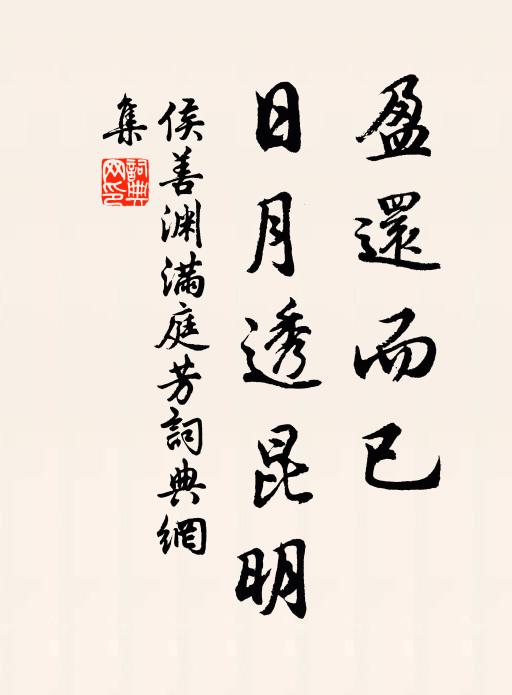 盈還而已
日月透昆明
侯善渊滿庭芳詞典網
集
詞典
网印